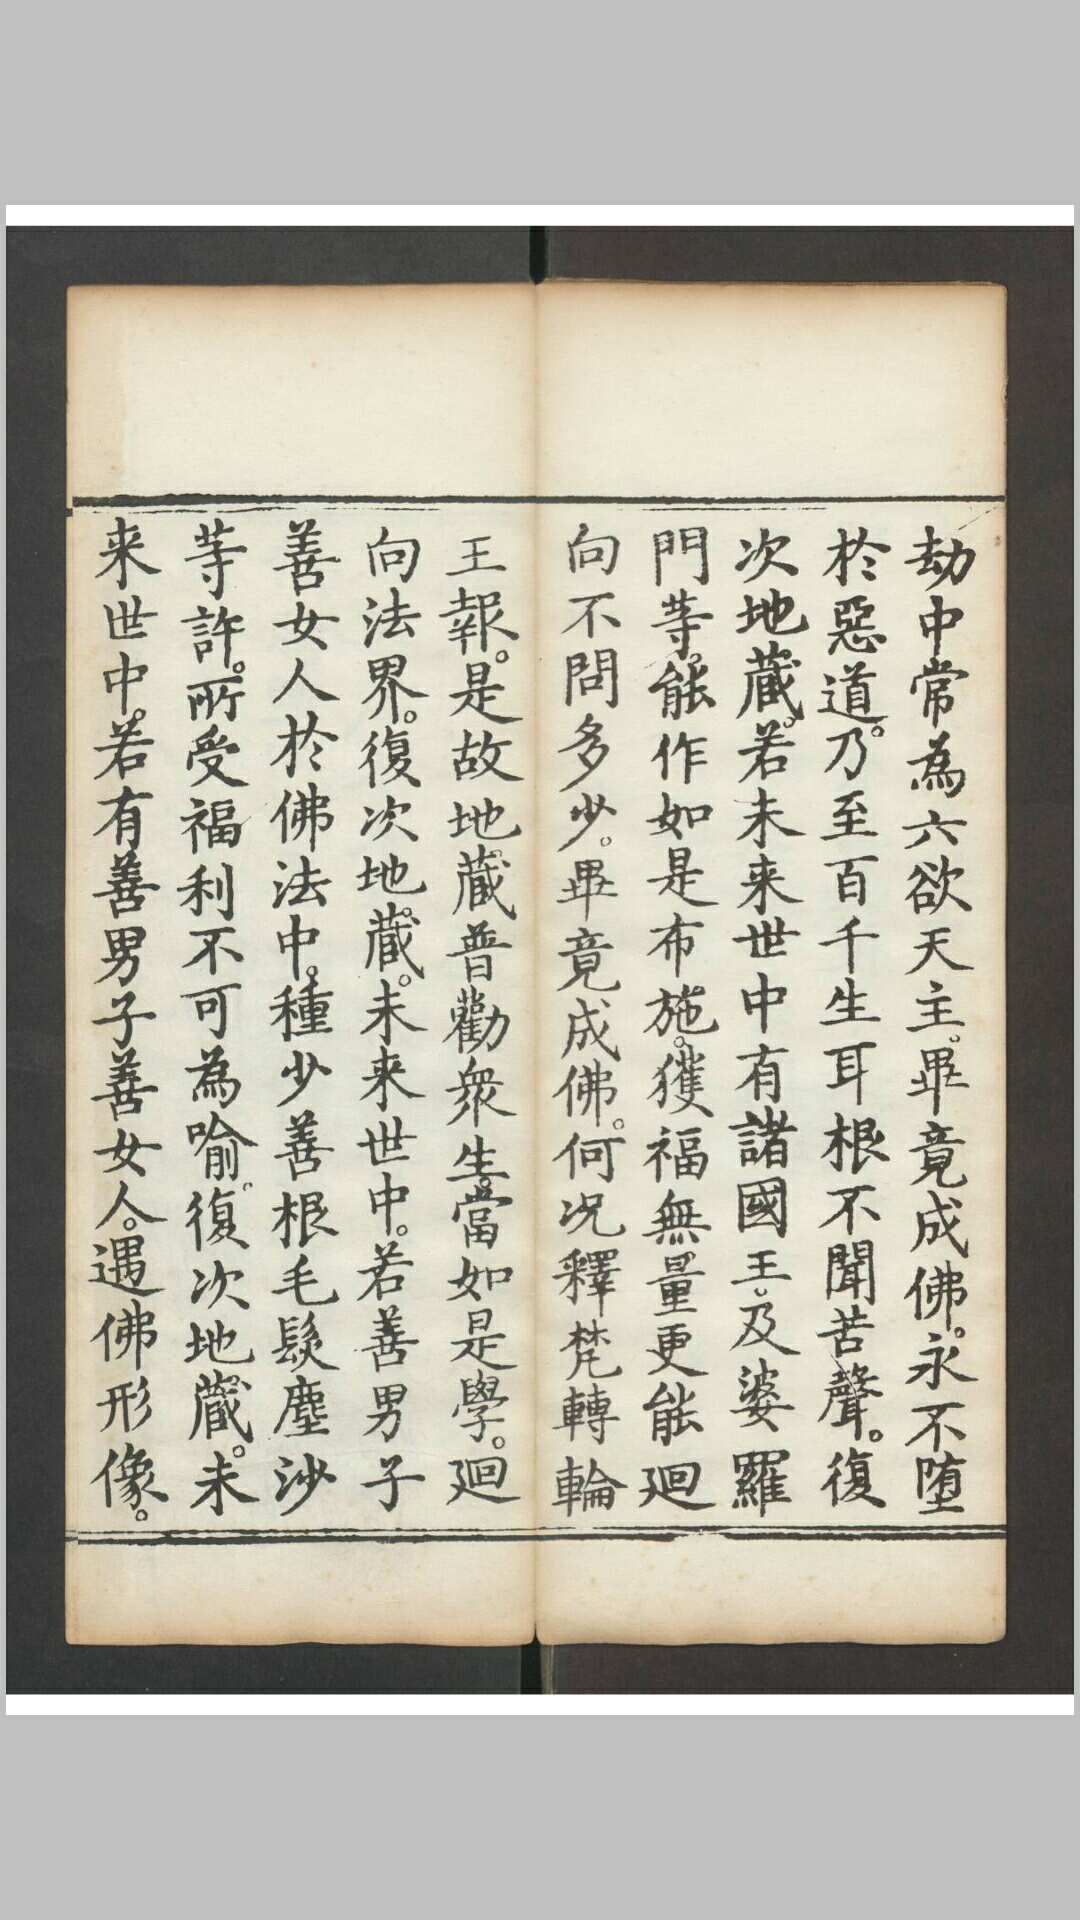 劫中常為六欲天主。畢竟成佛。永不墮
於惡道。乃至百千生耳根不聞苦聲。復
次地藏。若未来世中有諸國王。及婆羅
門等。能作如是布施。獲福無量更能迴
向不問多少。畢竟成佛。何況釋梵轉輪
王報。是故地藏。普勸眾生。當如是學。迴
向法界。復次地藏。未来世中。若善男子
善女人於佛法中。種少善根毛髮塵沙
等許。所受福利不可為喻。復次地藏。未
来世中。若有善男子善女人。遇佛形像。